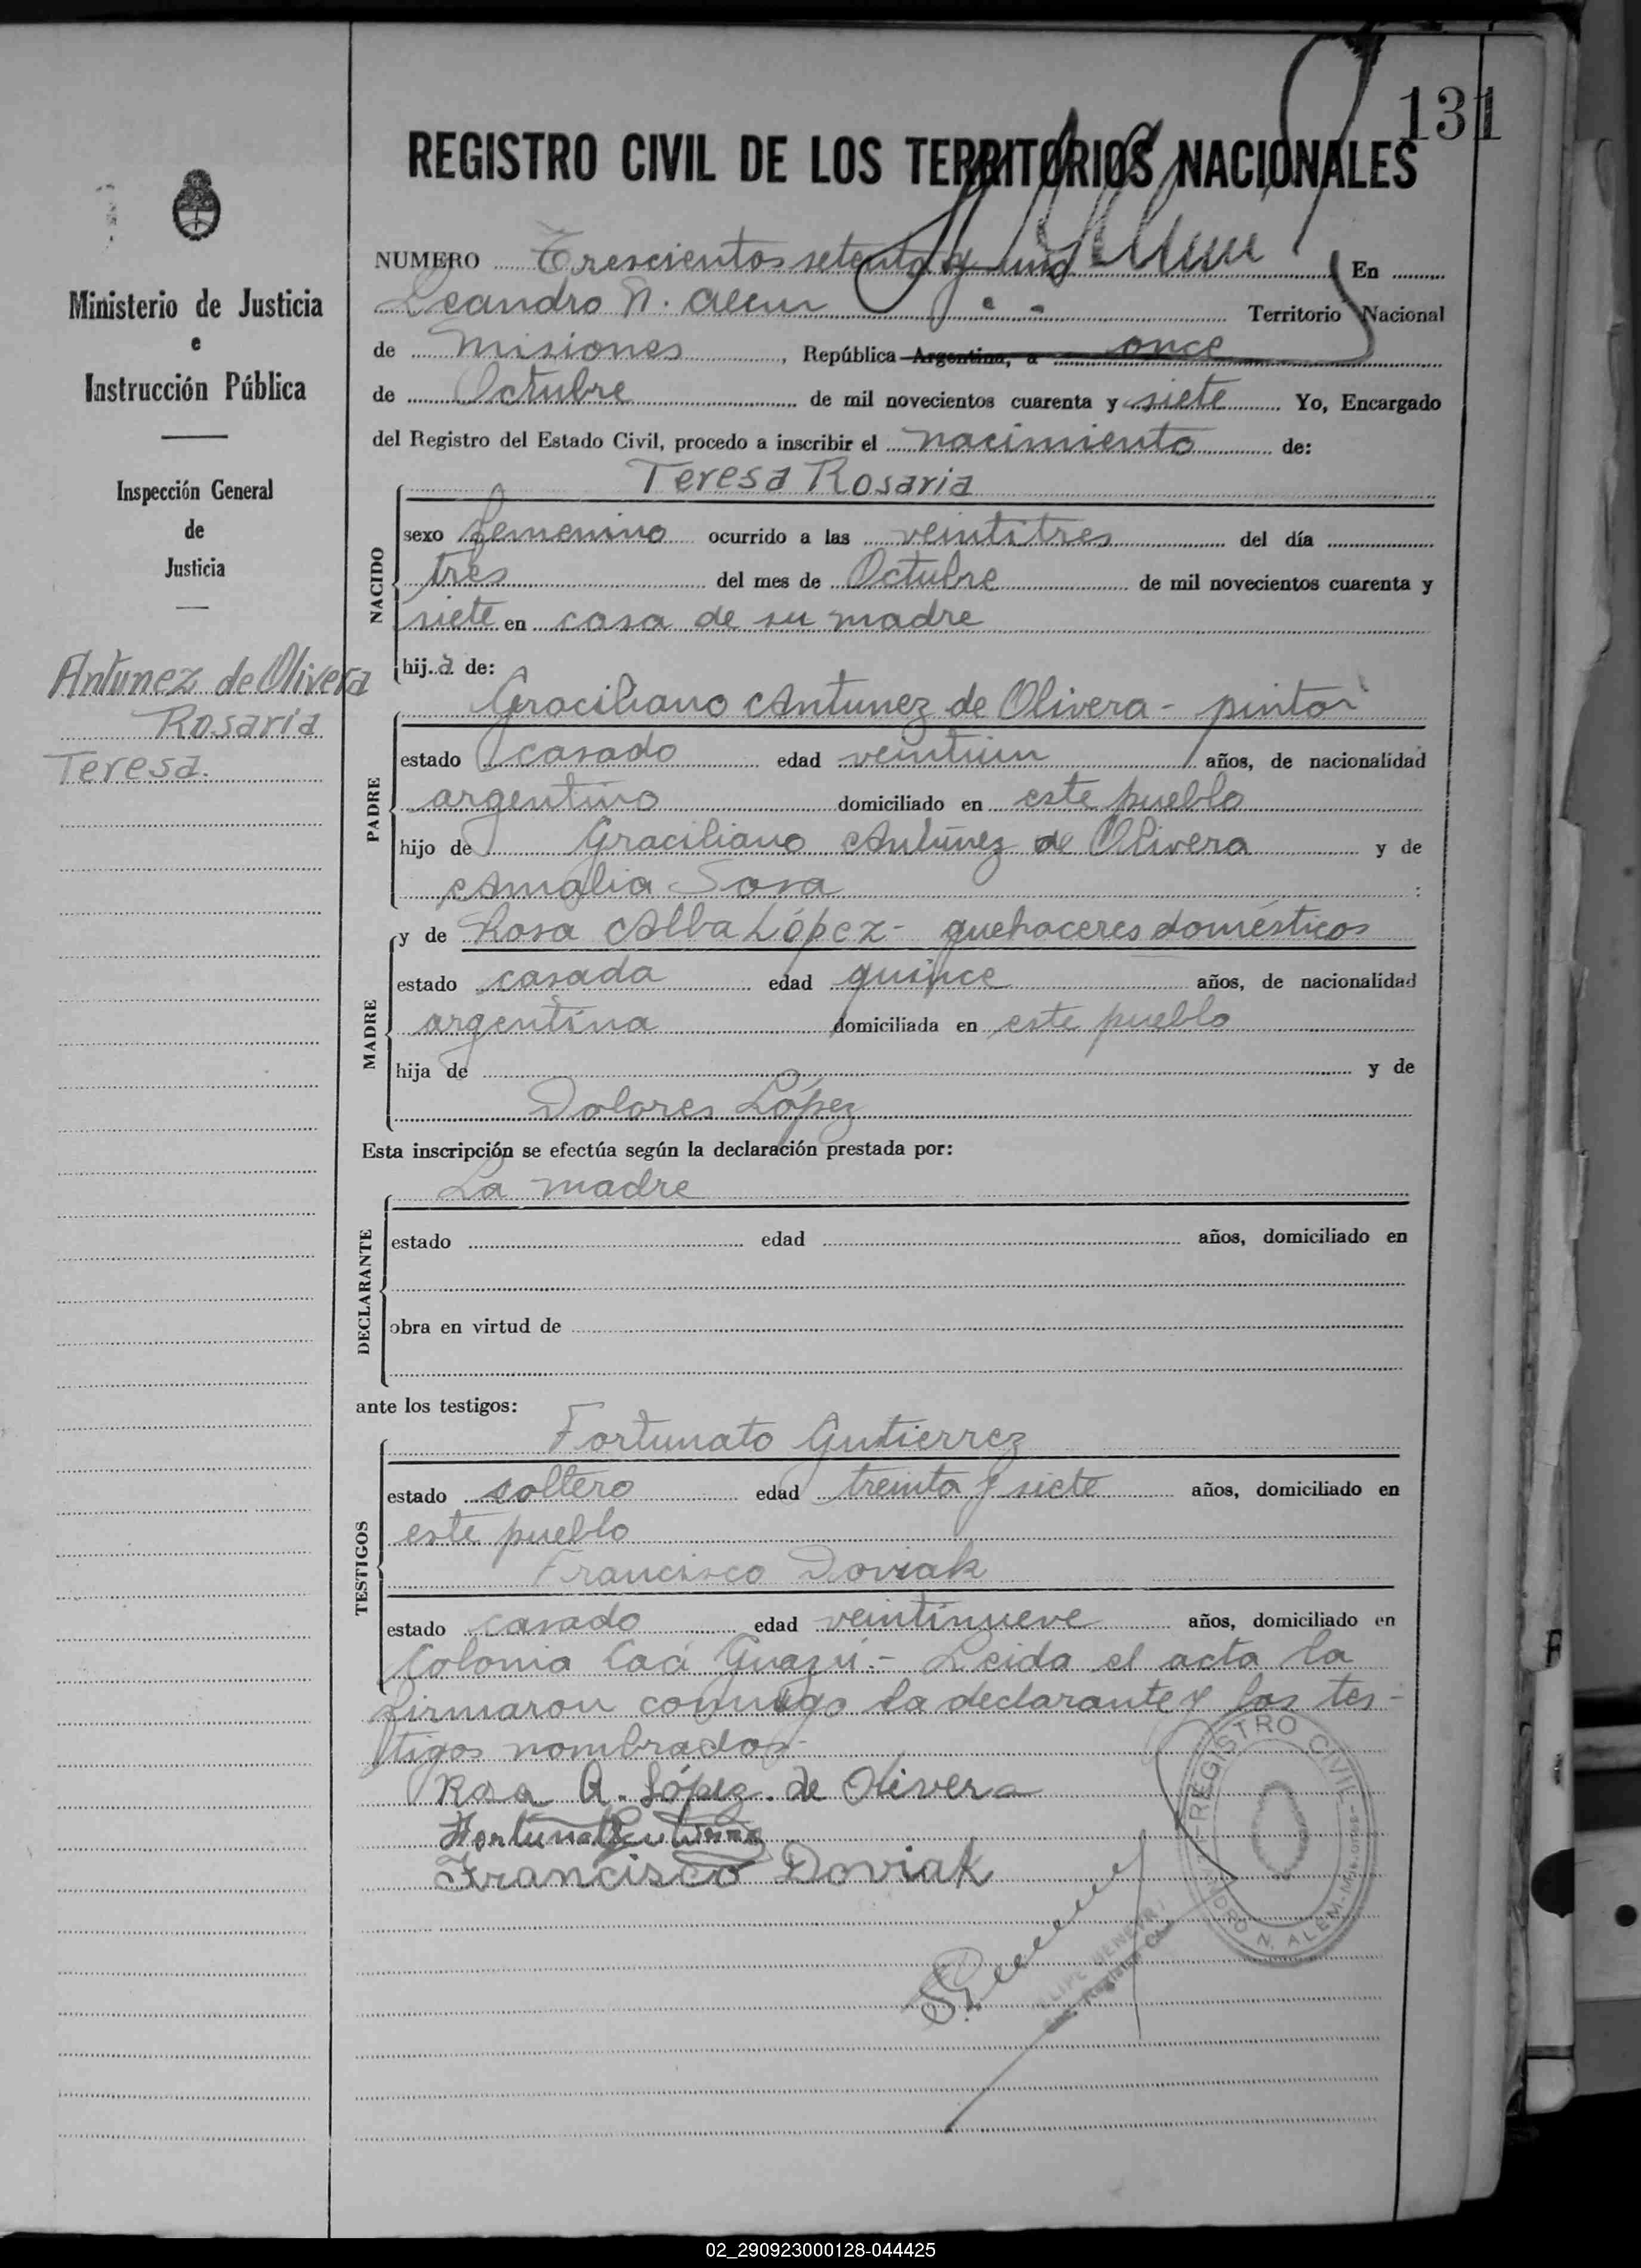 131
REGISTRO CIVIL DE LOS TERRITORIOS NACIONALES
Ministerio de Justicia
e
Instrucción Pública
Inspección General
de
Justicia
Antunez de Olivera
Rosaria
Teresa.
NUMERO Trescientos setenta y uno En
Leandro N. Alem Territorio Nacional
de Misiones, República Argentina, a once
de Octubre de mil novecientos cuarenta y siete Yo, Encargado
del Registro del Estado Civil, procedo a inscribir el nacimiento de:
Teresa Rosaria
NACIDO
sexo femenino ocurrido a las veintitres del día
tres del mes de Octubre de mil novecientos cuarenta y
siete en casa de su madre
hija de:
Graciliano Antunez de Olivera - pintor
PADRE
estado casado edad veintiun años, de nacionalidad
argentino domiciliado en este pueblo
hijo de Graciliano Antúnez de Olivera y de
Amalia Sosa
MADRE
y de Rosa Alba López - quehaceres domésticos
estado casada edad quince años, de nacionalidad
argentina domiciliada en este pueblo
hija de y de
Dolores López
Esta inscripción se efectúa según la declaración prestada por:
La madre
DECLARANTE
estado edad años, domiciliado en
obra en virtud de
ante los testigos:
Fortunato Gutierrez
TESTIGOS
estado soltero edad treinta y siete años, domiciliado en
este pueblo
Francisco Doviak
estado casado edad veintinueve años, domiciliado en
Colonia Caá Guazú.- Leida el acta la
firmaron conmigo la declarante y los tes-
tigos nombrados.-
Rosa A. López. de Olivera
Fortunato Gutierrez
Francisco Doviak
REGISTRO CIVIL
N. ALEM
02_290923000128-044425